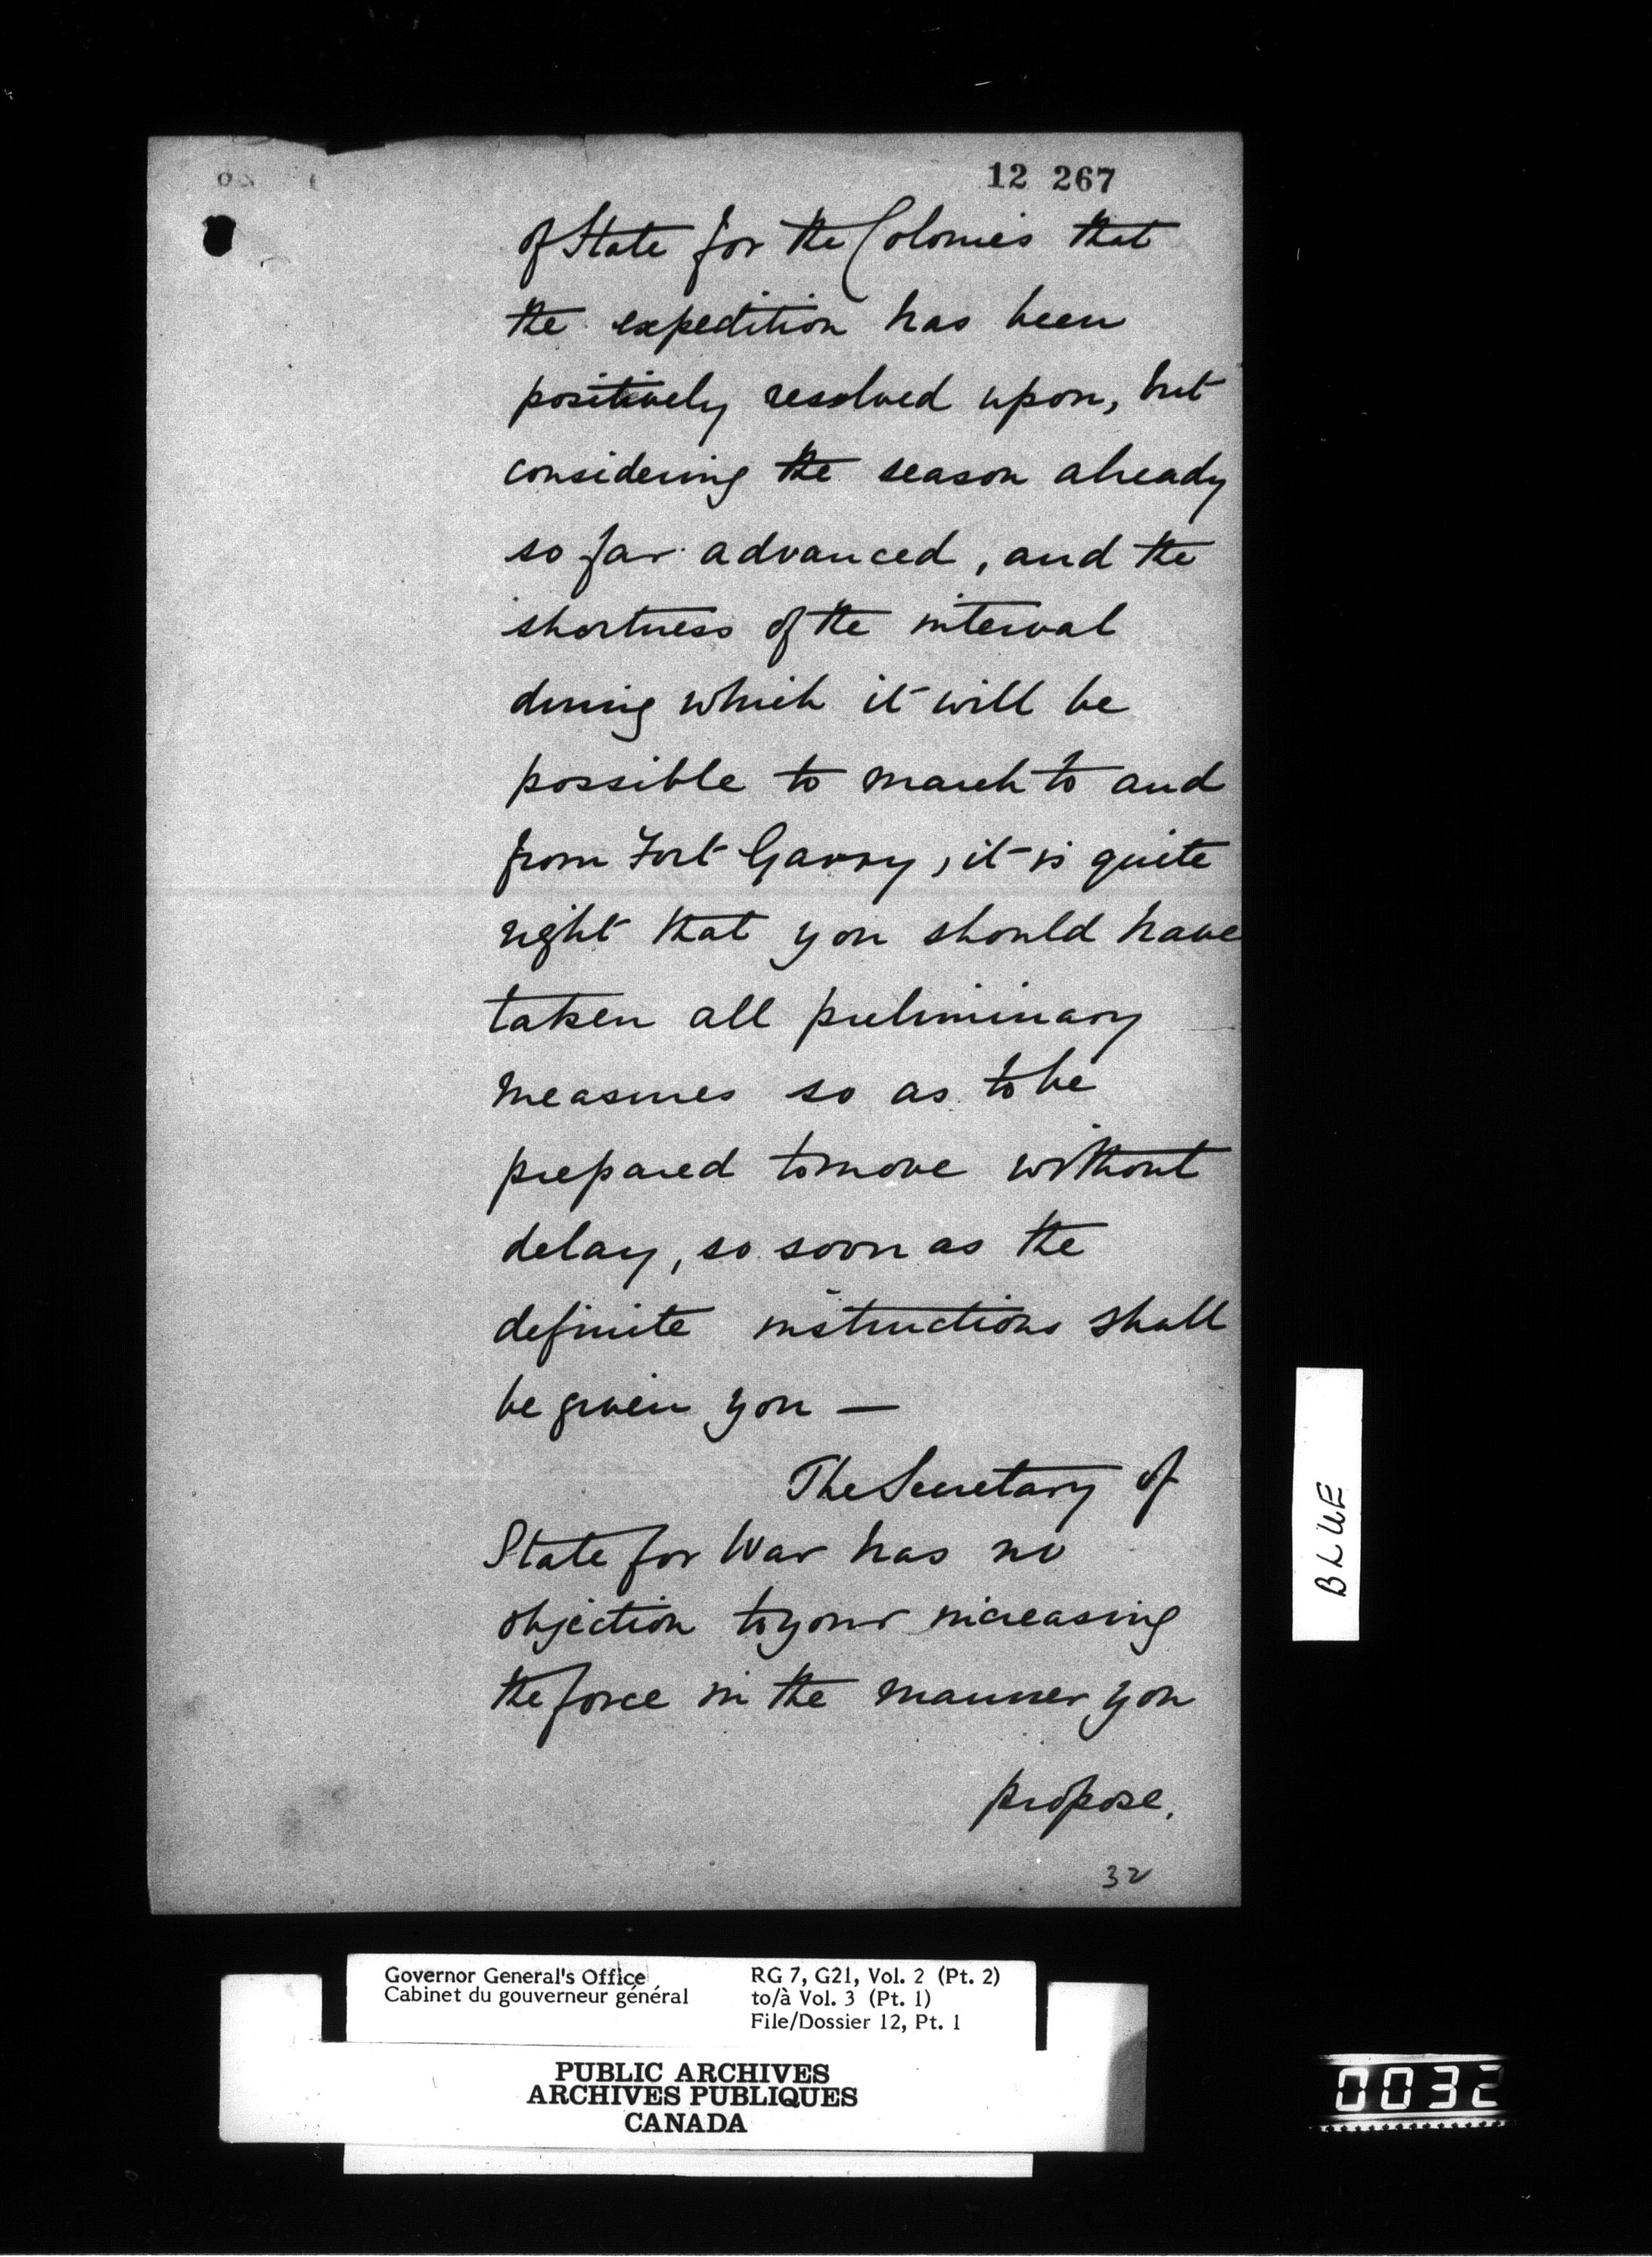 12 267
of State for the Colonies that
the expedition has been
positively resolved upon, but
considering the season already
so far advanced, and the
shortness of the interval
during which it will be
possible to march to and
from Fort Garry, it is quite
right that you should have
taken all preliminary
measures so as to be
prepared to move without
delay, so soon as the
definite instructions shall
be given you —
The Secretary of
State for War has no
objection to your increasing
the force in the manner you
propose.
32
BLUE
Governor General's Office
Cabinet du gouverneur général
RG 7, G21, Vol. 2 (Pt. 2)
to/à Vol. 3 (Pt. 1)
File/Dossier 12, Pt. 1
PUBLIC ARCHIVES
ARCHIVES PUBLIQUES
CANADA
0032